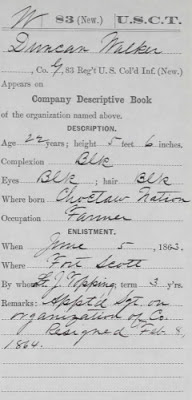 W | 83 (New.) | U.S.C.T.
Duncan Walker
, Co. G, 83 Reg't U. S. Col'd Inf. (New.)
Appears on
Company Descriptive Book
of the organization named above.
DESCRIPTION.
Age 22 years; height 5 feet 6 inches.
Complexion Blk
Eyes Blk ; hair Blk
Where born Choctaw Nation
Occupation Farmer
ENLISTMENT.
When June 5 , 1863.
Where Fort Scott
By whom Lt. J. Topping; term 3 y'rs.
Remarks: Appt'd Sgt. on
organization of Co.
Resigned Feb. 8,
1864.